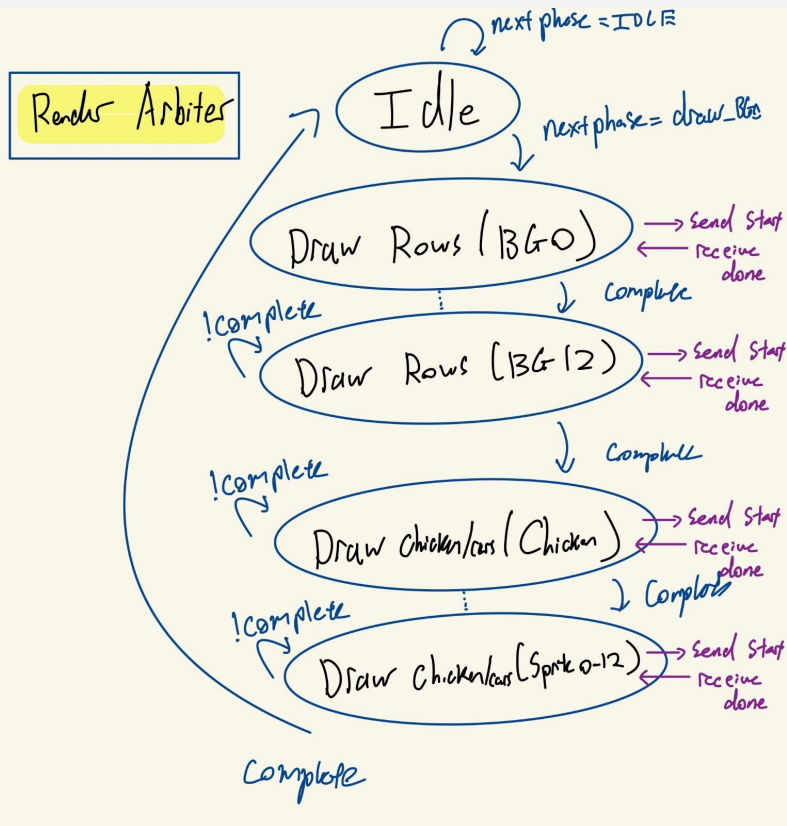 next phase = IDLE
Render Arbiter
Idle
next phase = draw_BG0
Draw Rows (BG0)
→ Send Start
← receive
done
Complete
!complete
Draw Rows (BG12)
→ Send Start
← receive
done
Complete
!complete
Draw Chicken/cars (Chicken)
→ Send Start
← receive
done
Complete
!complete
Draw Chicken/cars (Sprite 0-12)
→ Send Start
← receive
done
Complete